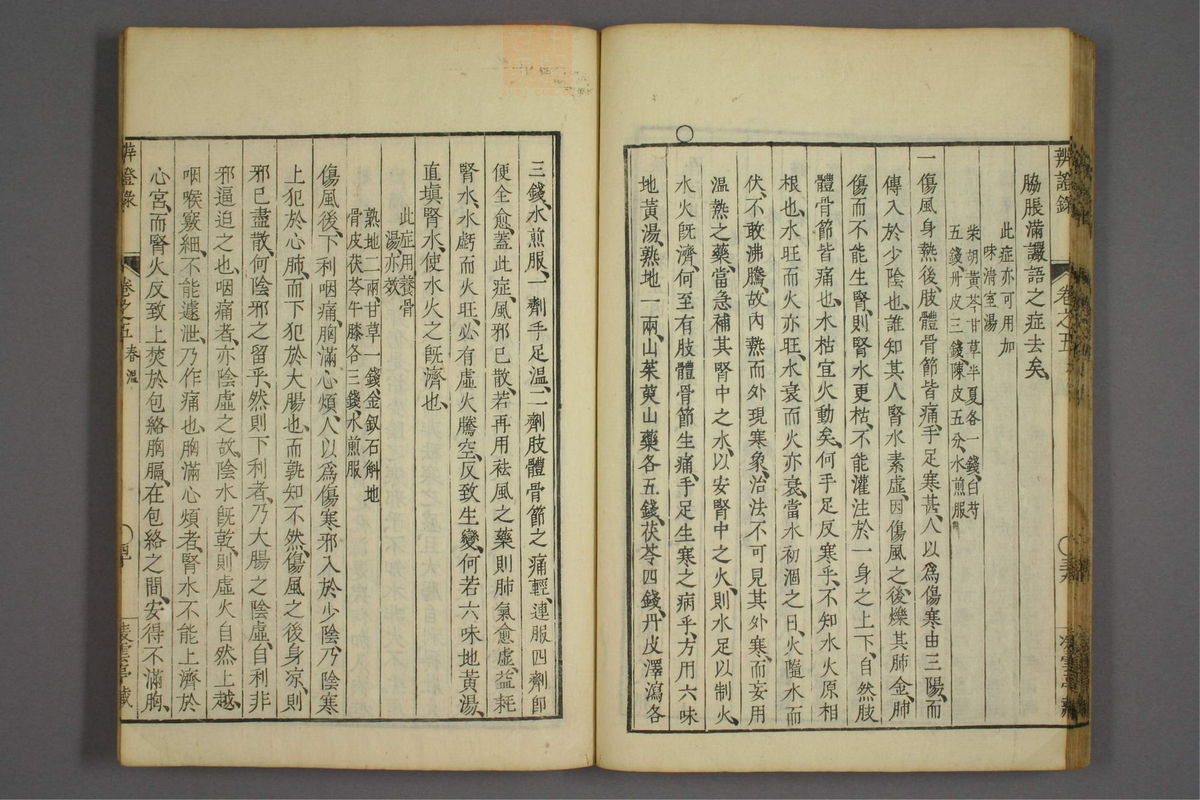 辨證錄 卷之五
脇脹滿譫語之症去矣
此症亦可用加
味滑室湯
柴胡黃芩甘草半夏各一錢白芍
五錢丹皮三錢陳皮五分水煎服
一傷風身熱後肢體骨節皆痛手足寒甚人以爲傷寒由三陽而
傳入於少陰也誰知其人腎水素虛因傷風之後爍其肺金肺
傷而不能生腎則腎水更枯不能灌注於一身之上下自然肢
體骨節皆痛也水枯宜火動矣何手足反寒乎不知水火原相
根也水旺而火亦旺水衰而火亦衰當水初涸之日火隨水而
伏不敢沸騰故內熱而外現寒象治法不可見其外寒而妄用
溫熱之藥當急補其腎中之水以安腎中之火則水足以制火
水火旣濟何至有肢體骨節生痛手足生寒之病乎方用六味
地黃湯熟地一兩山茱萸山藥各五錢茯苓四錢丹皮澤瀉各
三錢水煎服一劑手足溫二劑肢體骨節之痛輕連服四劑節
便全愈蓋此症風邪已散若再用祛風之藥則肺氣愈虛益耗
腎水水虧而火旺必有虛火騰空反致生變何若六味地黃湯
直塡腎水使水火之旣濟也
此症用養骨
湯亦效
熟地二兩甘草一錢金釵石斛地
骨皮茯苓午膝各三錢水煎服
傷風後下利咽痛胸滿心煩人以爲傷寒邪入於少陰乃陰寒
上犯於心肺而下犯於大腸也而孰知不然傷風之後身凉則
邪已盡散何陰邪之留乎然則下利者乃大腸之陰虛自利非
邪逼迫之也咽痛者亦陰虛之故陰水旣乾則虛火自然上越
咽喉竅細不能遽泄乃作痛也胸滿心煩者腎水不能上濟於
心宮而腎火反致上焚於包絡胸膈在包絡之間安得不滿胸
辨證錄 卷之五 春溫 四